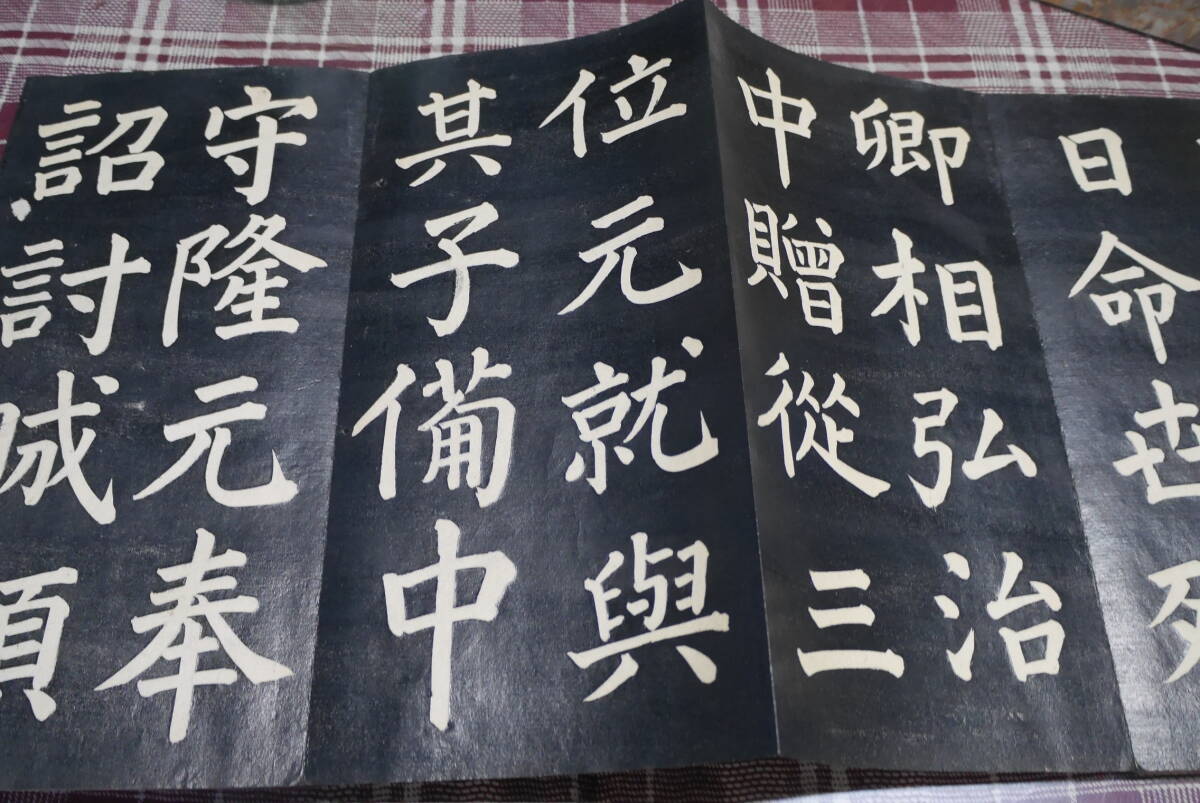 日命世
卿相弘治
中贈從三
位元就與
其子備中
守隆元奉
詔討